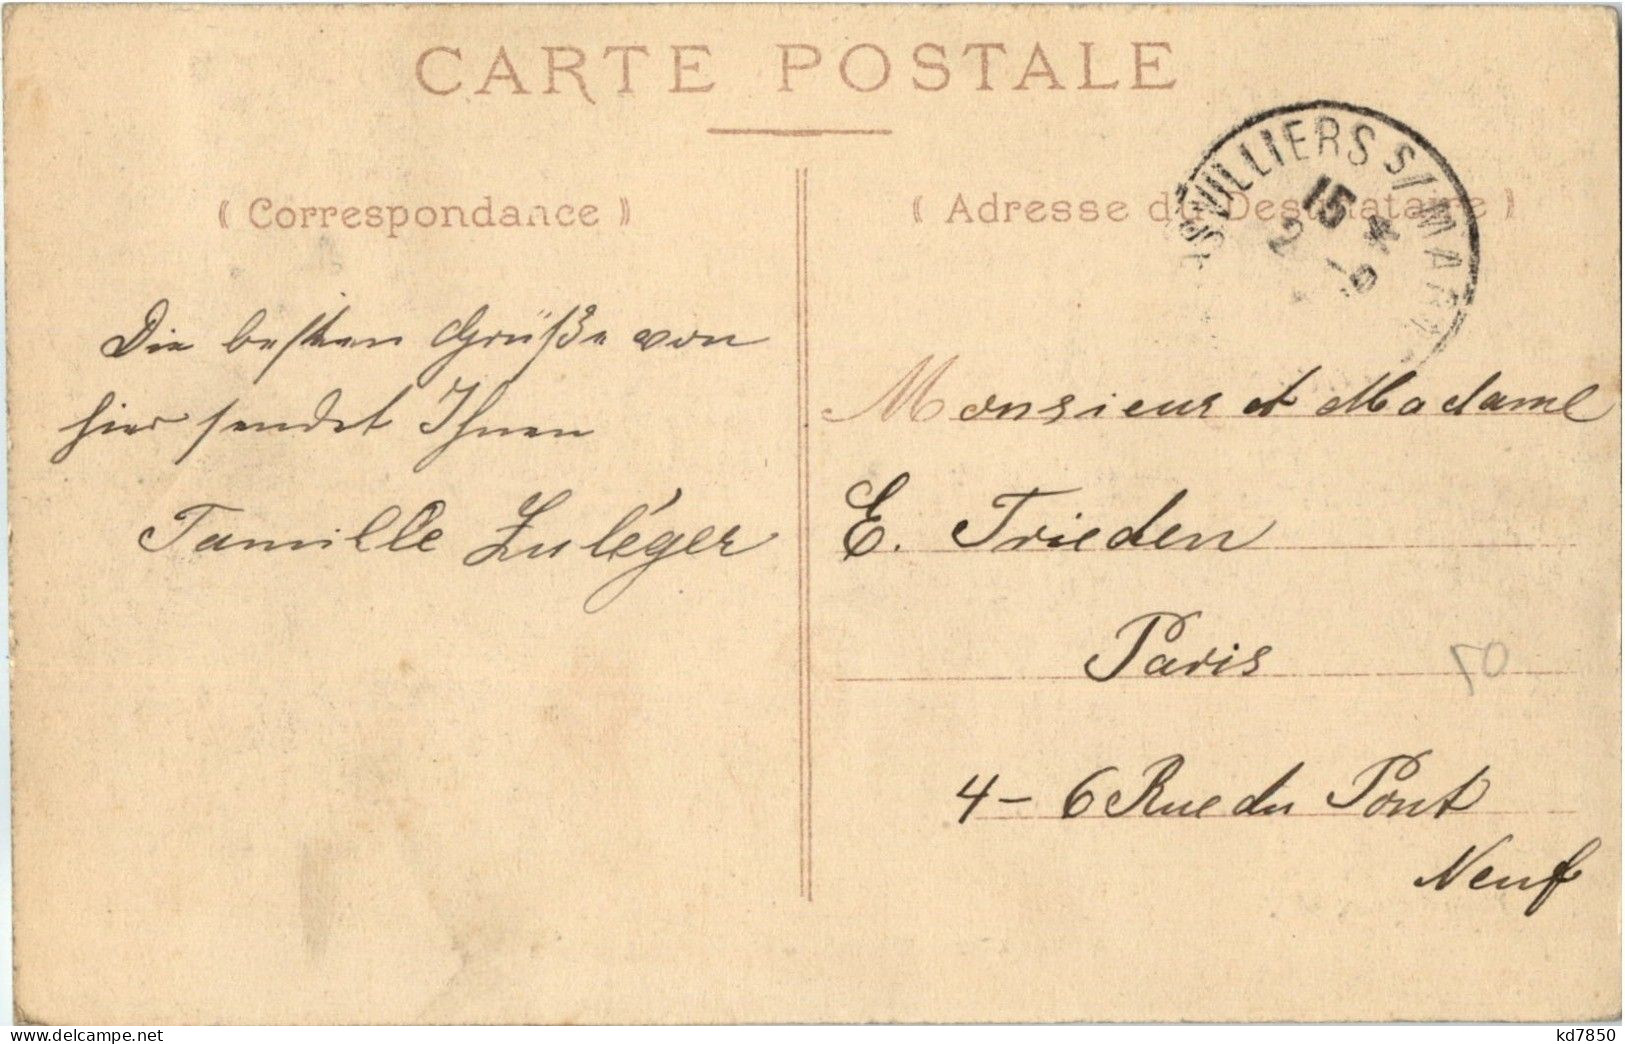 CARTE POSTALE
( Correspondance )
( Adresse du Destinataire )
VILLIERS S/MAR
15
Die besten Grüße von
hier sendet Ihnen
Famille Zuléger
Monsieur et Madame
E. Frieden
Paris
50
4-6 Rue du Pont
Neuf
www.delcampe.net
kd7850